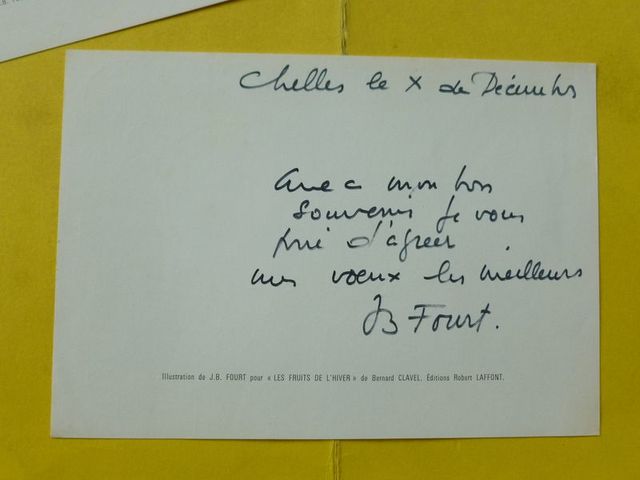 Chelles le X de Décembre
avec mon bon
souvenir je vous
prie d'agréer
mes voeux les meilleurs
JB Fourt.
Illustration de J.B. FOURT pour « LES FRUITS DE L'HIVER » de Bernard CLAVEL. Éditions Robert LAFFONT.